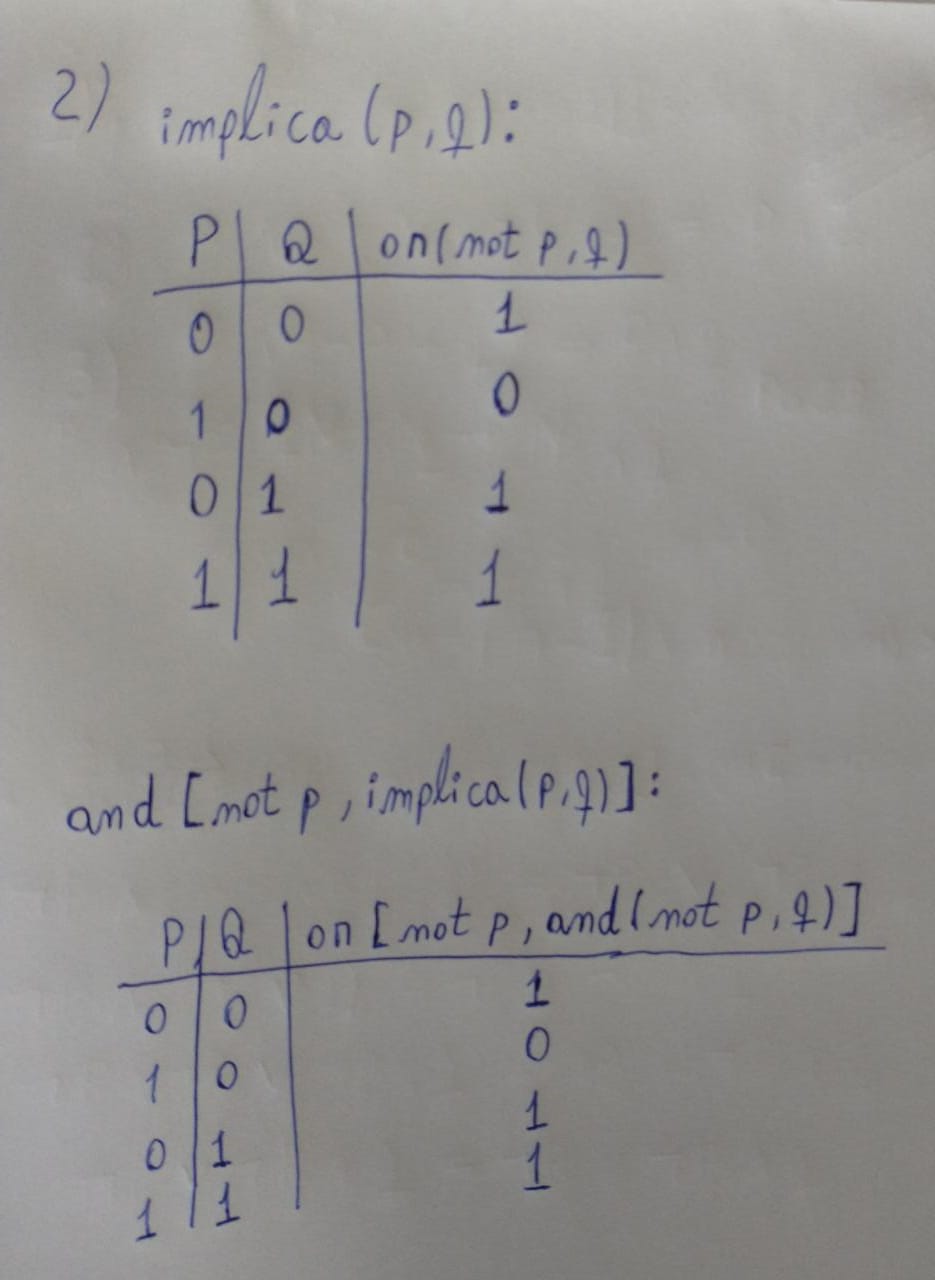 2) implica (p,q):
P | Q | or(not p,q)
0 | 0 | 1
1 | 0 | 0
0 | 1 | 1
1 | 1 | 1
and [not p, implica(p,q)]:
P | Q | or [not p, and(not p,q)]
0 | 0 | 1
1 | 0 | 0
0 | 1 | 1
1 | 1 | 1